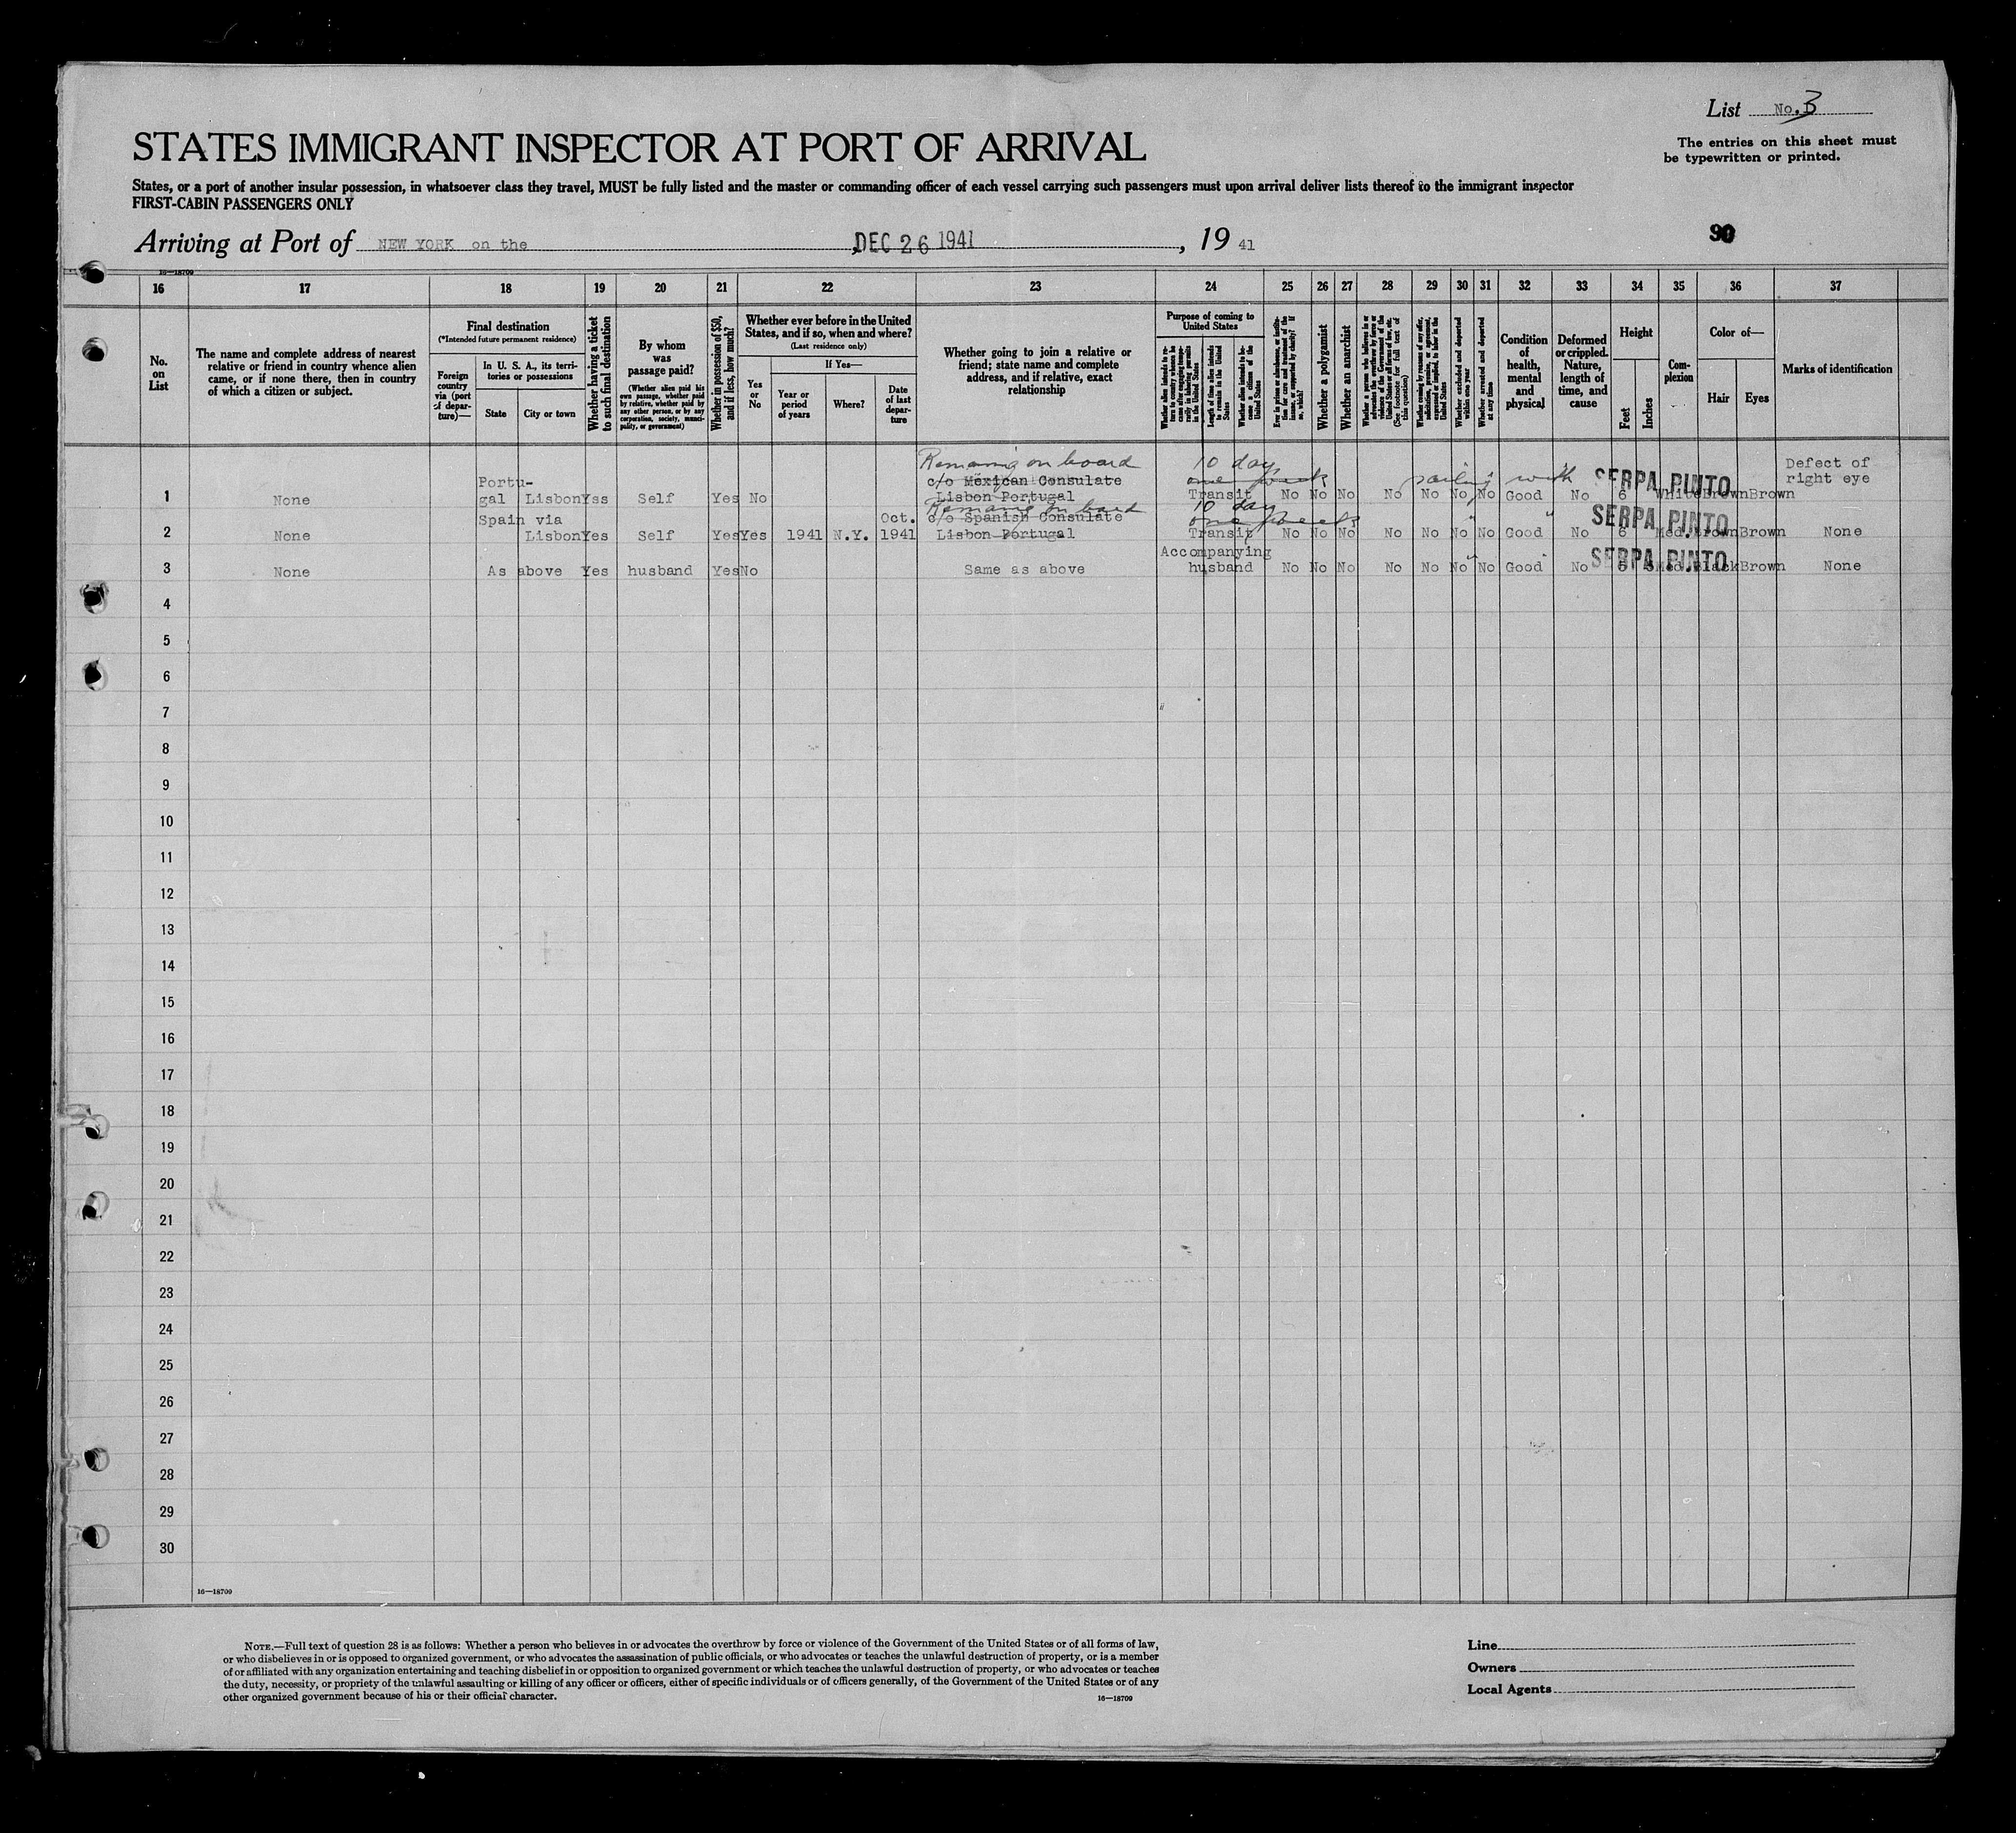 List No. 3
STATES IMMIGRANT INSPECTOR AT PORT OF ARRIVAL
The entries on this sheet must
be typewritten or printed.
States, or a port of another insular possession, in whatsoever class they travel, MUST be fully listed and the master or commanding officer of each vessel carrying such passengers must upon arrival deliver lists thereof to the immigrant inspector
FIRST-CABIN PASSENGERS ONLY
Arriving at Port of NEW YORK on the DEC 26 1941, 19 41
90
16—18709
16 17 18 19 20 21 22 23 24 25 26 27 28 29 30 31 32 33 34 35 36 37
No. on List
The name and complete address of nearest relative or friend in country whence alien came, or if none there, then in country of which a citizen or subject.
Final destination
(*Intended future permanent residence)
Foreign country via (port of departure)—
In U. S. A., its territories or possessions
State
City or town
Whether having a ticket to such final destination
By whom was passage paid?
(Whether alien paid his own passage, whether paid by relative, whether paid by any other person, or by any corporation, society, municipality, or government)
Whether in possession of $50, and if less, how much?
Whether ever before in the United States, and if so, when and where?
(Last residence only)
Yes or No
If Yes—
Year or period of years
Where?
Date of last departure
Whether going to join a relative or friend; state name and complete address, and if relative, exact relationship
Purpose of coming to United States
Whether alien intends to return to country whence he came after engaging temporarily in laboring pursuits in the United States
Length of time alien intends to remain in the United States
Whether alien intends to become a citizen of the United States
Ever in prison or almshouse, or institution for care and treatment of the insane, or supported by charity? If so, which?
Whether a polygamist
Whether an anarchist
Whether a person who believes in or advocates the overthrow by force or violence of the Government of the United States or all forms of law, etc. (See footnote for full text of this question)
Whether coming by reasons of any offer, solicitation, promise, or agreement, expressed or implied, to labor in the United States
Whether excluded and deported within one year
Whether arrested and deported at any time
Condition of health, mental and physical
Deformed or crippled. Nature, length of time, and cause
Height
Feet
Inches
Complexion
Color of—
Hair
Eyes
Marks of identification
Remaining on board 10 day sailing with SERPA PINTO Defect of
Portu- c/o Mexican Consulate one week right eye
1 None gal Lisbon Yes Self Yes No Lisbon Portugal Transit No No No No No No No Good No 6 White Brown Brown
Remaining on board 10 day " " SERPA PINTO
Spain via Oct. c/o Spanish Consulate one week
2 None Lisbon Yes Self Yes Yes 1941 N.Y. 1941 Lisbon Portugal Transit No No No No No No No Good No 6 Med. Brown Brown None
Accompanying " " SERPA PINTO
3 None As above Yes husband Yes No Same as above husband No No No No No No No Good No Med. Black Brown None
4
5
6
7
8
9
10
11
12
13
14
15
16
17
18
19
20
21
22
23
24
25
26
27
28
29
30
16—18709
NOTE.—Full text of question 28 is as follows: Whether a person who believes in or advocates the overthrow by force or violence of the Government of the United States or of all forms of law,
or who disbelieves in or is opposed to organized government, or who advocates the assassination of public officials, or who advocates or teaches the unlawful destruction of property, or is a member
of or affiliated with any organization entertaining and teaching disbelief in or opposition to organized government or which teaches the unlawful destruction of property, or who advocates or teaches
the duty, necessity, or propriety of the unlawful assaulting or killing of any officer or officers, either of specific individuals or of officers generally, of the Government of the United States or of any
other organized government because of his or their official character.
16—18709
Line
Owners
Local Agents